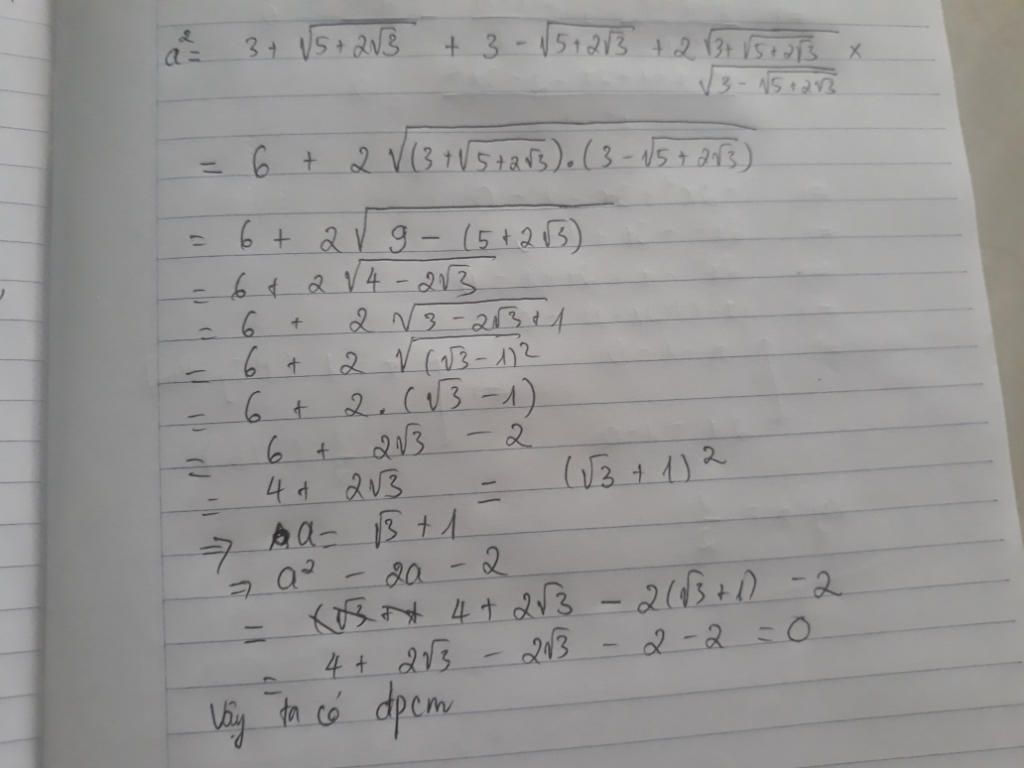 a² = 3 + √(5 + 2√3) + 3 - √(5 + 2√3) + 2 √(3 + √(5 + 2√3)) ×
√(3 - √(5 + 2√3))
= 6 + 2 √((3 + √(5 + 2√3)).(3 - √(5 + 2√3)))
= 6 + 2 √(9 - (5 + 2√3))
= 6 + 2 √(4 - 2√3)
= 6 + 2 √(3 - 2√3 + 1)
= 6 + 2 √((√3 - 1)²)
= 6 + 2.(√3 - 1)
= 6 + 2√3 - 2
= 4 + 2√3 = (√3 + 1)²
⇒ a = √3 + 1
⇒ a² - 2a - 2
= 4 + 2√3 - 2(√3 + 1) - 2
= 4 + 2√3 - 2√3 - 2 - 2 = 0
Vậy ta có đpcm